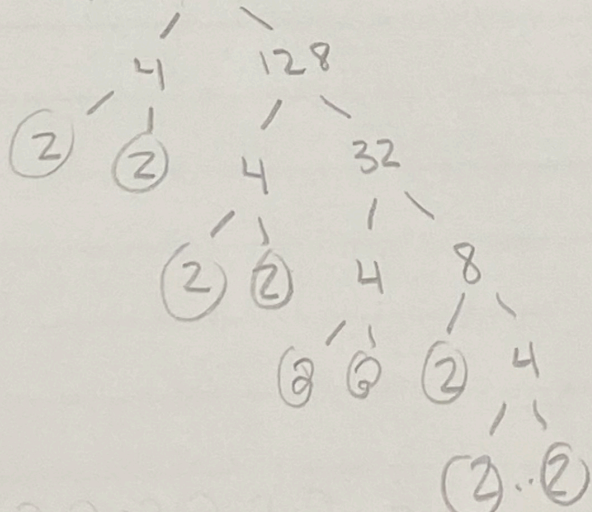 4 128
2 2 4 32
2 2 4 8
2 2 2 4
2..2